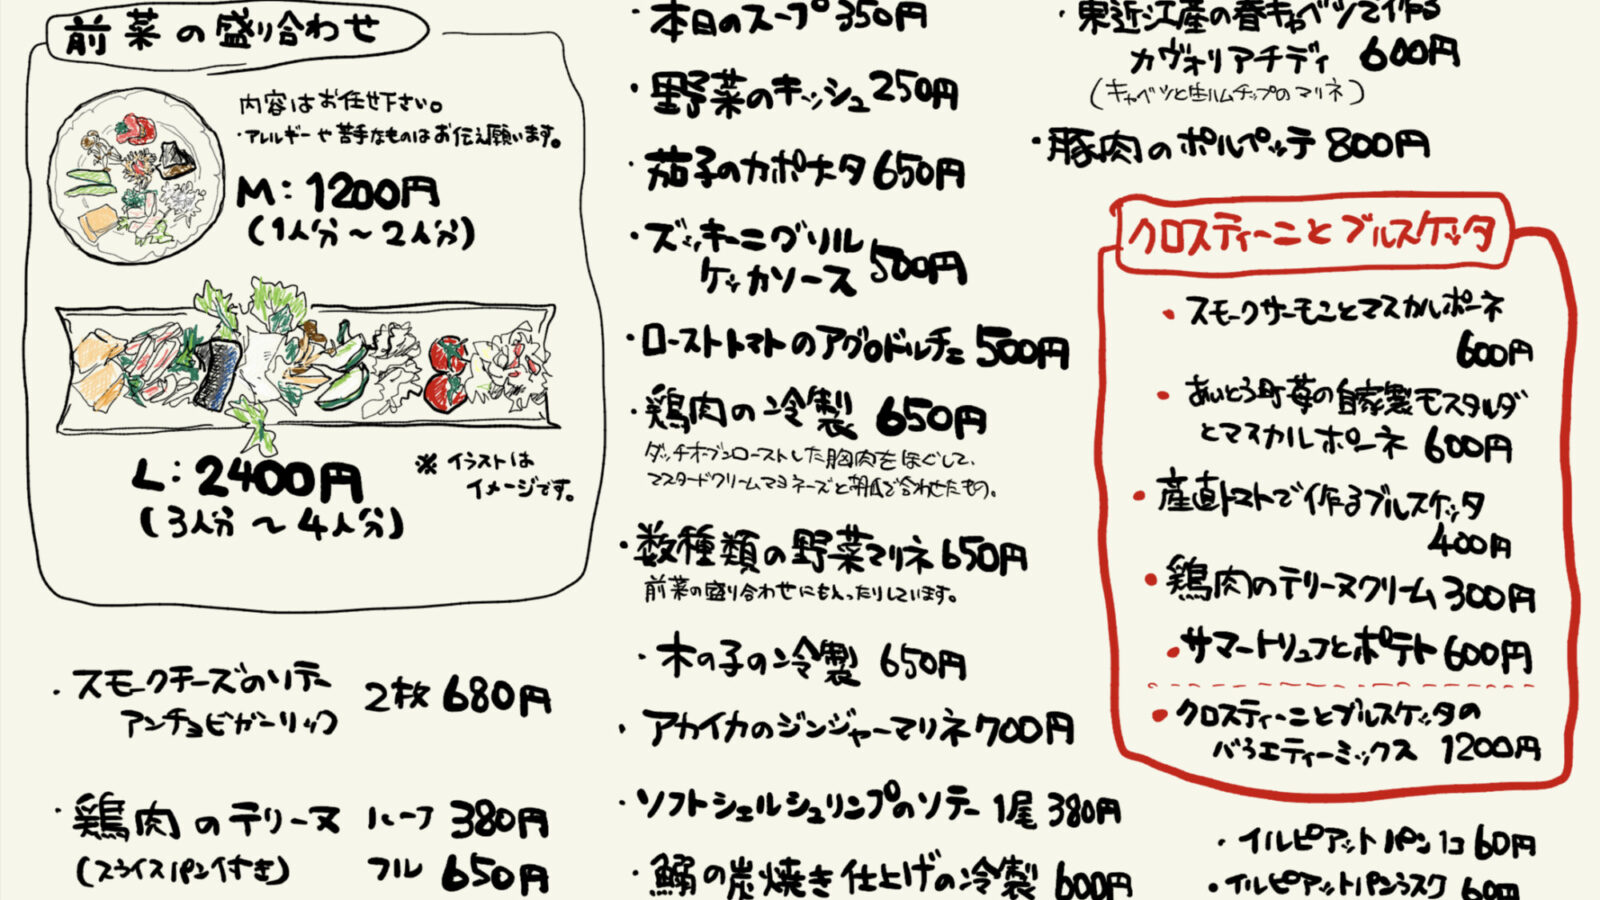 前菜の盛り合わせ
内容はお任せ下さい。
・アレルギーや苦手なものはお伝え願います。
M：1200円
(1人分～2人分)
L：2400円
(3人分～4人分)
※イラストは
イメージです。
・スモークチーズのソテー
アンチョビガーリック
2枚 680円
・鶏肉のテリーヌ ハーフ 380円
(スライスパン付すき) フル 650円
・本日のスープ 350円
・野菜のキッシュ 250円
・茄子のカポナタ 650円
・ズッキーニグリル
ケッカソース 500円
・ローストトマトのアグロドルチェ 500円
・鶏肉の冷製 650円
ダッチオーブンローストした胸肉をほぐして、
マスタードクリームマヨネーズと和風で合わせたもの。
・数種類の野菜マリネ 650円
前菜の盛り合わせにも入ったりしています。
・木の子の冷製 650円
・アカイカのジンジャーマリネ 700円
・ソフトシェルシュリンプのソテー 1尾 380円
・鰯の炭焼き仕上げの冷製 600円
・東近江産の春キャベツで作る
カヴォリアチディ 600円
(キャベツと生ハムチップのマリネ)
・豚肉のポルペッテ 800円
クロスティーニとブルスケッタ
・スモークサーモンとマスカルポーネ
600円
・あいとう町苺の自家製モスタルダ
とマスカルポーネ 600円
・産直トマトで作るブルスケッタ
400円
・鶏肉のテリーヌクリーム 300円
・サマートリュフとポテト 600円
・クロスティーニとブルスケッタの
バラエティーミックス 1200円
・イルピアットパン 1コ 60円
・イルピアットパンラスク 60円